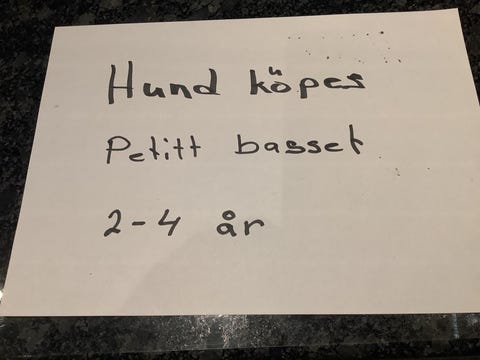 Hund köpes
Petitt basset
2-4 år